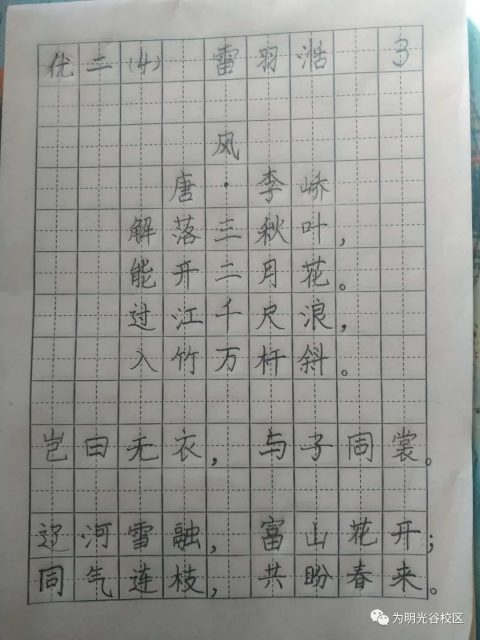 优二(4) 雷羽湉 3
风
唐·李峤
解落三秋叶，
能开二月花。
过江千尺浪，
入竹万杆斜。
岂曰无衣，与子同裳。
辽河雪融，富山花开；
同气连枝，共盼春来。
为明光谷校区